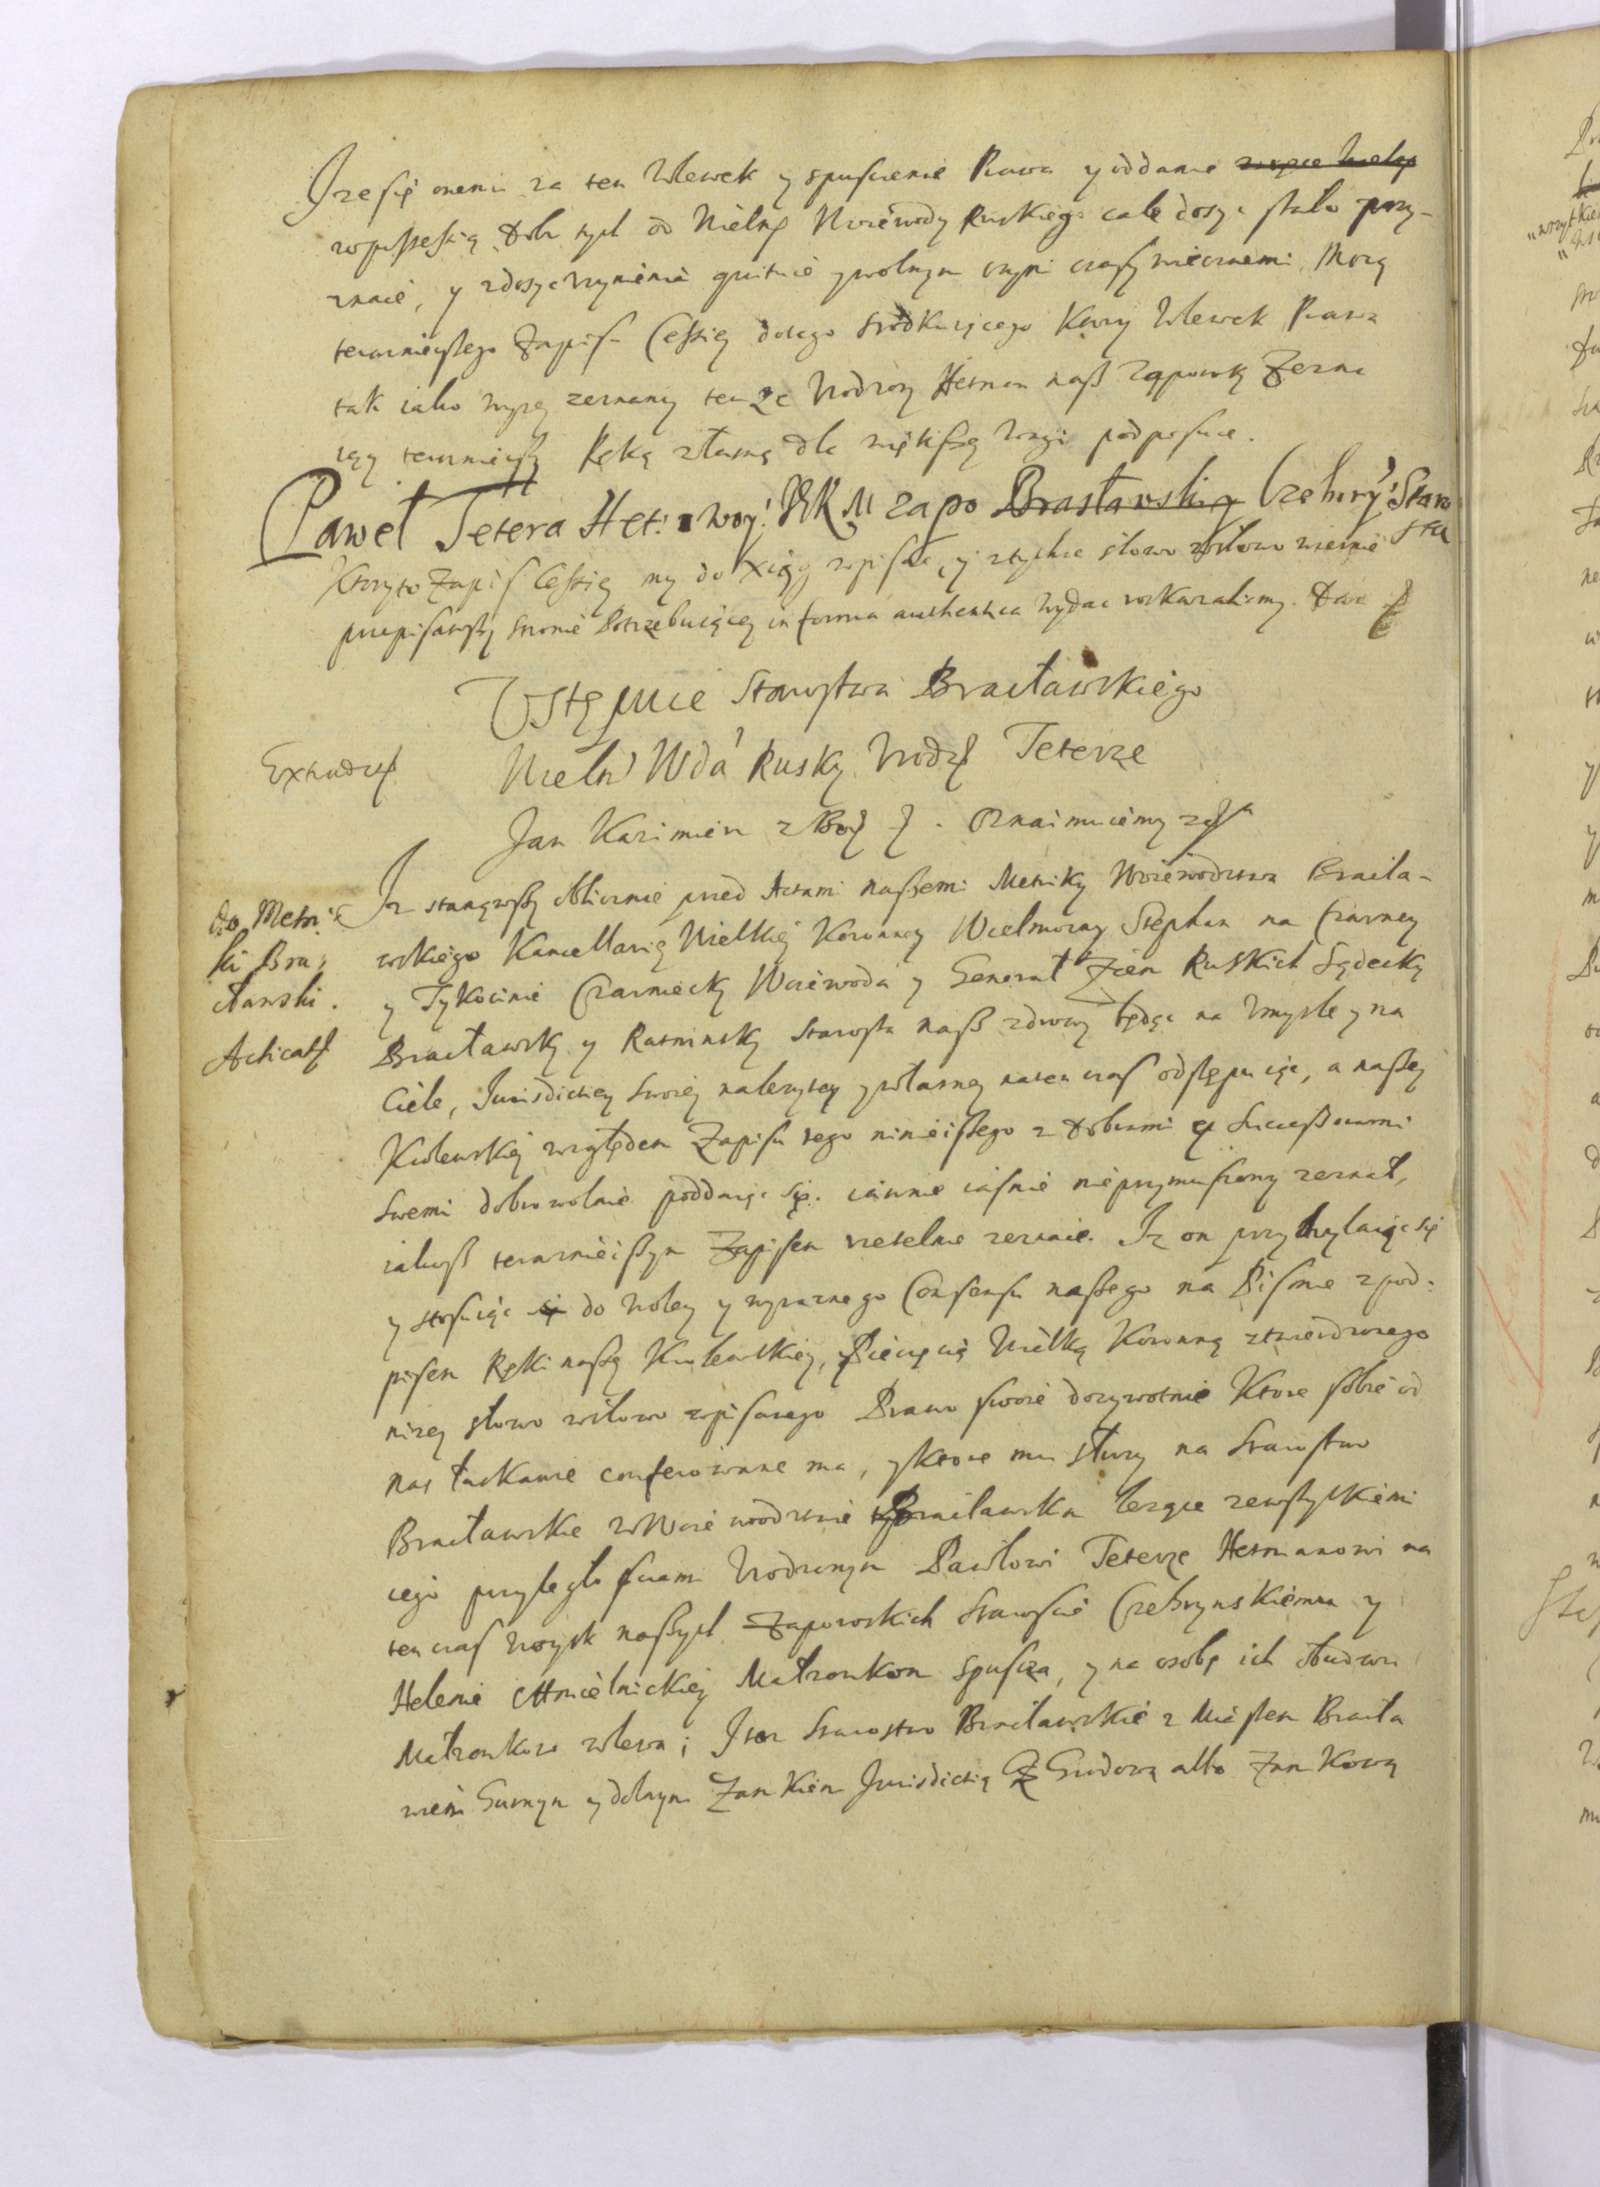 Iz się onemu za ten Wlewek y spuszczenie Prawa y oddanie
w possessią Dobr tych od Wielmo Woiewody Ruskiego cale dosyc stało przy-
znaie, y z dosyc uczynienia quituie y wolnym czyni czasy wiecznemi Mocą
teraznieyszego Zapisu Cessiey dotego Srodkuiącego Ktory Wlewek Prawa
tak iako wyzey zeznany tenze Urodzony Hetman nasz Zaporosky Zezna
iący teraznieyszy Ręką własną dla więtszey wagi podpisuie.
Paweł Tetera Het: Woy: JKM Zapo Brasławskig Czehiry: Staro
sta
Ktoryto Zapis Cessiey my do Xiąg wpisac, y z tychze słowo w słowo wiernie
przepisawszy stronie Potrzebuiącey in forma authentica wydac roskazalismy. Dat
Ustępuie Starostwa Bracławskiego
Wielm Wda Rusky Urodz Teterze
Extraditum
Jan Kazimierz z Boz. Oznaimuiemy
do Metri
ki Bra
cławski.
Acticatum
Iz stanąwszy oblicznie przed Actami naszemi Metriky Woiewodztwa Bracła-
wskiego Kancellariey Wielkiey Koronney Wielmozny Stephan na Czarncy
y Tykocinie Czarniecky Woiewoda y Generał Ziem Ruskich Sądecky
Bracławsky y Ratninsky Starosta nasz zdrowy będąc na Umysle y na
Ciele, Jurisdictiey swoiey nalezytey y własney naten czas odstępuiąc, a naszey
Krolewskiey względem Zapisu tego ninieiszego z Dobrami y Successorami
swemi dobrowolnie poddaiąc się. iawnie iasnie nieprzymuszony zeznał,
iakosz teraznieiszym Zapisem rzetelnie zeznaie. Iz on przychylaiąc się
y stosuiąc do Woley y wyraznego Consensu naszego na Pismie z pod-
pisem Ręki naszey Krolewskiey, y Pieczęcią Wielką Koronną ztwierdzonego
nizey słowo w słowo wpisanego Prawo swoie dozywotnie Ktore sobie od
nas łaskawie conferowane ma, y ktore mu słuzy na Starostwo
Bracławskie w Woiewodztwie Bracławskim lezące ze wszytkiemi
iego przyległosciami Urodzonym Pawłowi Teterze Hetmanowi na
ten czas woysk naszych Zaporoskich Staroscie Czehrynskiemu y
Helenie Chmielnickiey Małzonkom spuscza, y na osobę ich oboudwu
Małzonkow wlewa; To iest Starostwo Bracławskie z Miastem Bracła
wiem Gurnym y dolnym Zamkiem Jurisdictią Grodową albo Zamkową